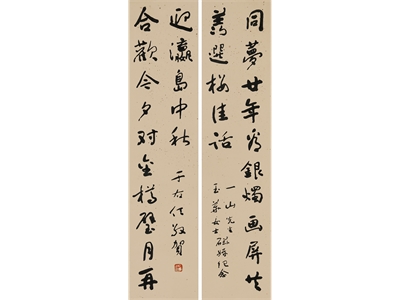 同夢廿年看銀燭画屏共
羨選樓佳話
一山先生
玉華女士磁婚紀念
合歡今夕对金樽璧月再
迎瀛島中秋
于右任敬賀